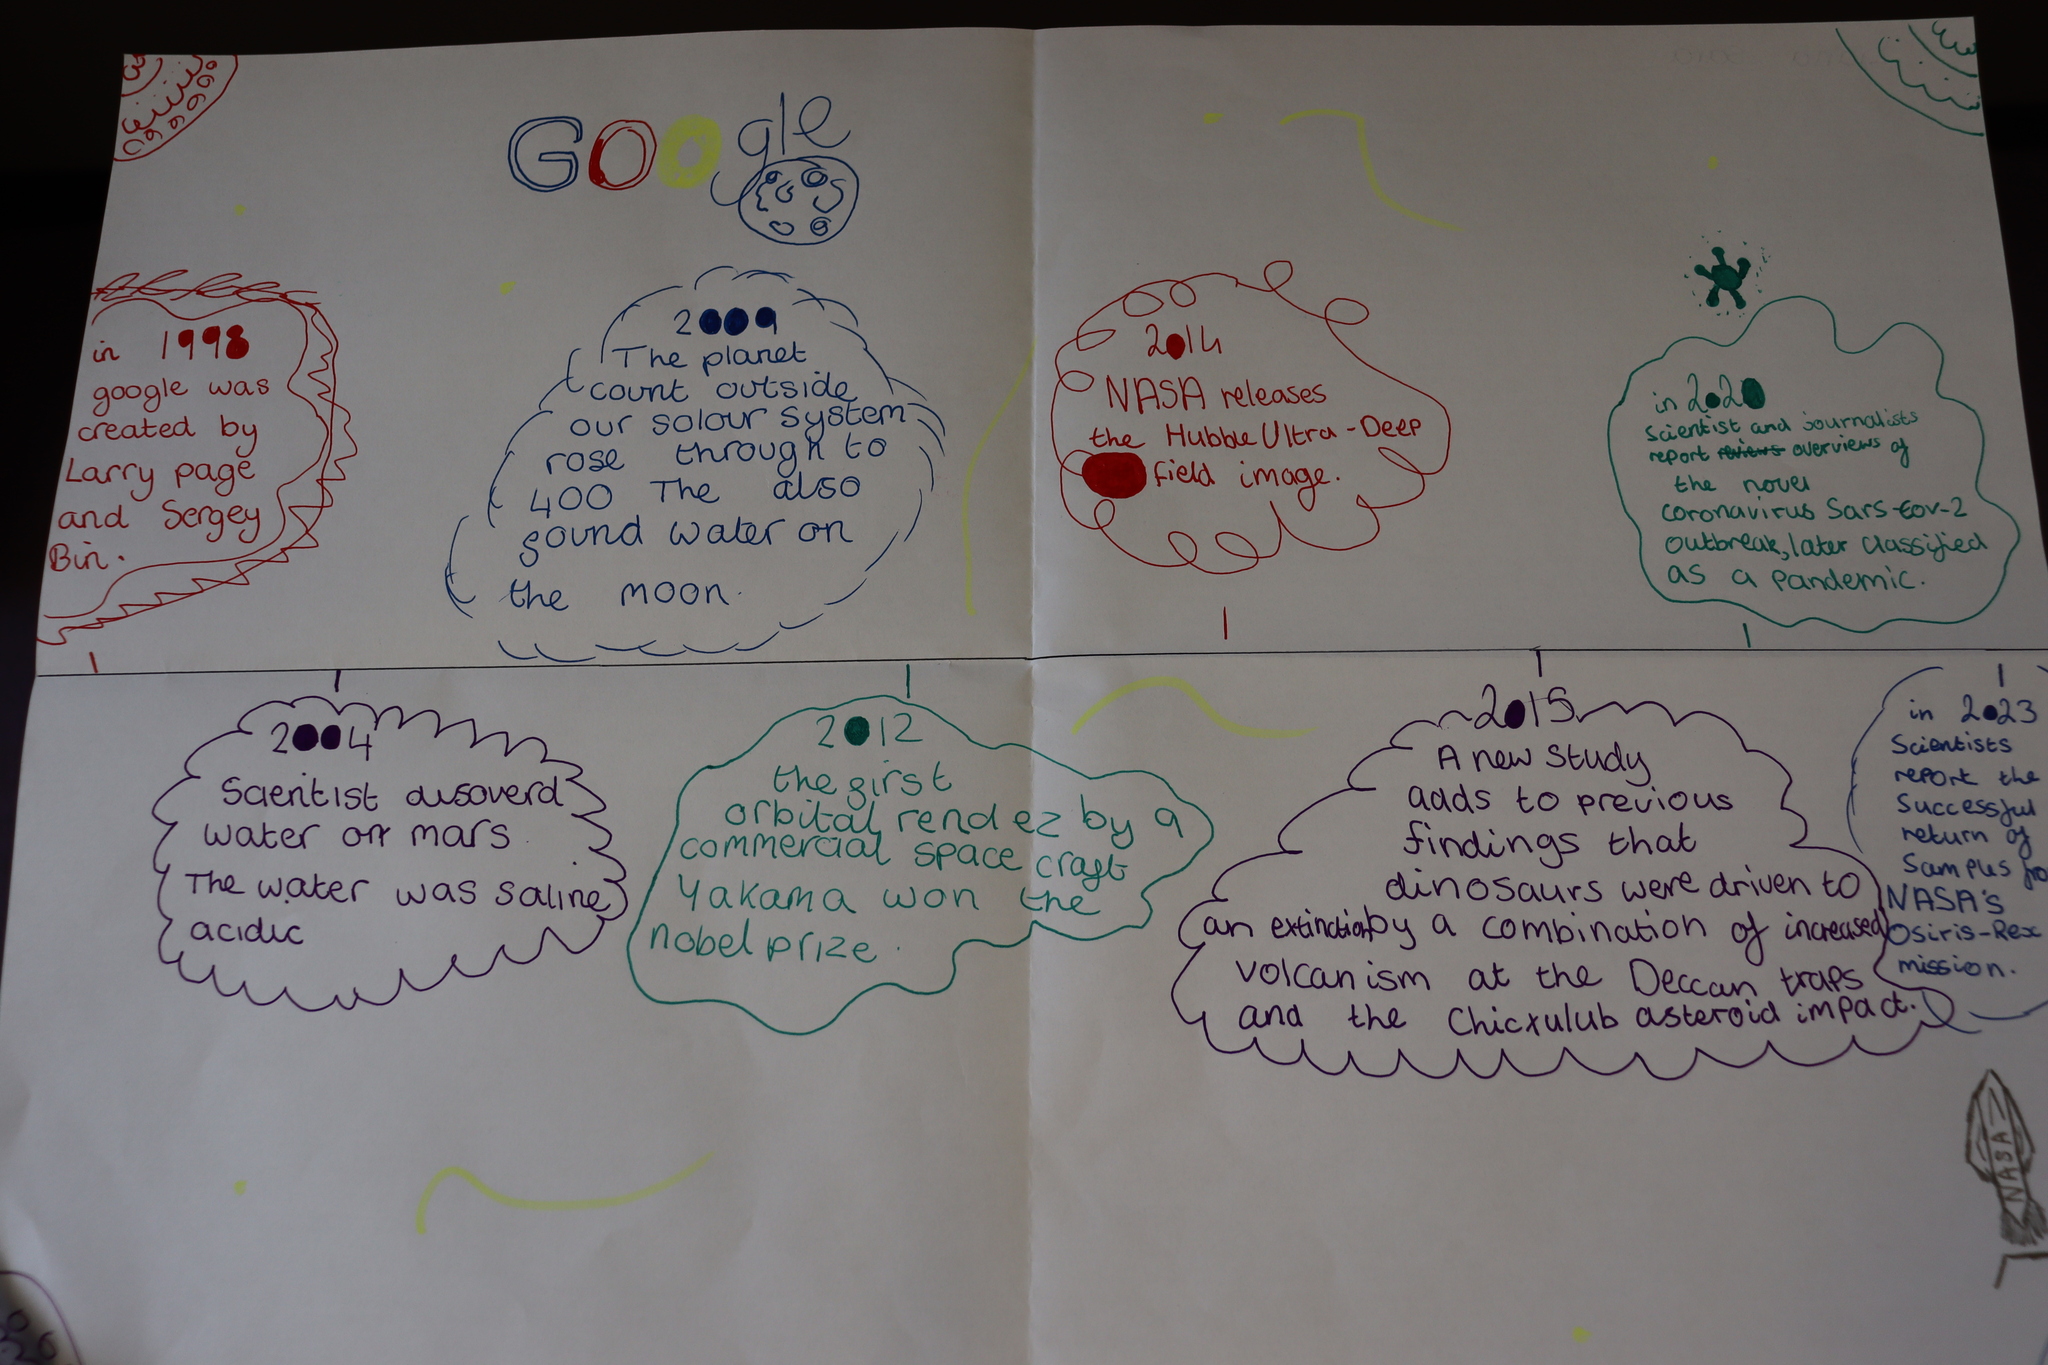 Google
in 1998
google was
created by
Larry page
and Sergey
Bin.
2009
The planet
count outside
our solour system
rose through to
400 The also
found water on
the moon.
2014
NASA releases
the Hubble Ultra-Deep
field image.
in 2020
Scientist and journalists
report reviews overviews of
the novel
coronavirus Sars-Cov-2
outbreak, later classified
as a pandemic.
2004
Scientist disoverd
water on mars.
The water was saline
acidic
2012
the first
orbital rendez by a
commercial space craft
Yakama won the
nobel prize.
2015
A new study
adds to previous
findings that
dinosaurs were driven to
an extinction by a combination of increased
volcanism at the Deccan traps
and the Chicxulub asteroid impact.
in 2023
Scientists
report the
successful
return of
samples fro
NASA's
Osiris-Rex
mission.
NASA